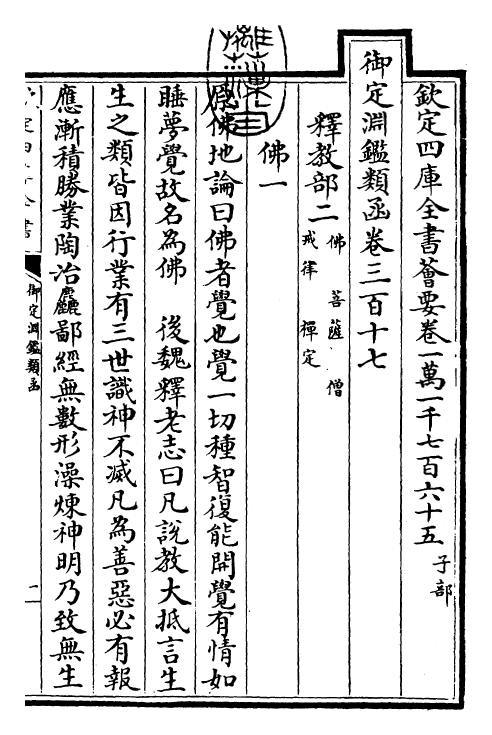 欽定四庫全書薈要卷一萬一千七百六十五 子部
御定淵鑑類函卷三百十七
釋教部二 佛 菩薩 僧 戒律 禪定
佛一
佛地論曰佛者覺也覺一切種智復能開覺有情如
睡夢覺故名為佛 後魏釋老志曰凡說教大抵言生
生之類皆因行業有三世識神不滅凡為善惡必有報
應漸積勝業陶冶麤鄙經無數形澡煉神明乃致無生
御定淵鑑類函
一